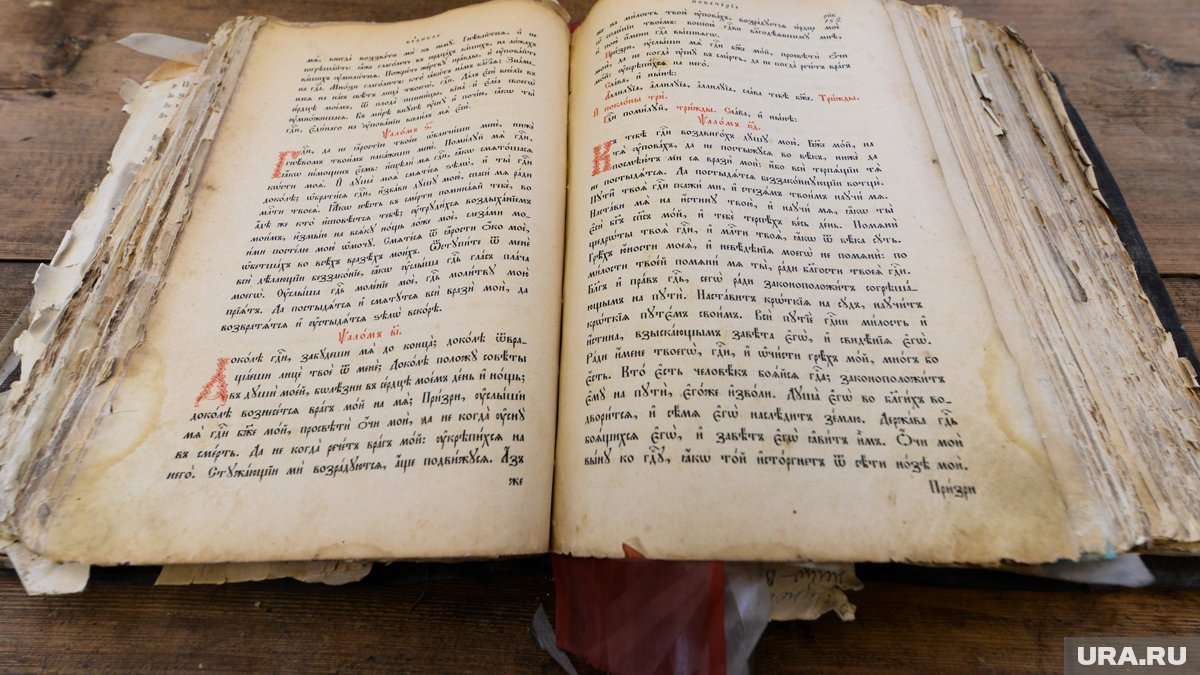 великое
мѧ̀, внегда̀ воззва́ти мѝ къ немꙋ̀. Гнѣ́вайтесѧ, и҆ не
согрѣша́йте: ꙗ҆̀же глаго́лете въ сердца́хъ ва́шихъ, на ло́жахъ
ва́шихъ ᲂу҆мили́тесѧ. Пожри́те же́ртвꙋ пра́вды, и҆ ᲂу҆пова́йте
на гдⷭ҇а. Мно́зи глаго́лютъ: кто̀ ꙗ҆ви́тъ на́мъ бл҃га̑ѧ; Зна́ме-
насѧ на на́съ свѣ́тъ лица̀ твоегѡ̀, гдⷭ҇и. Да́лъ є҆сѝ весе́лїе въ
се́рдцѣ мое́мъ. Ѿ плода̀ пшени́цы, вїна̀ и҆ є҆ле́а своегѡ̀
ᲂу҆мно́жишасѧ. Въ ми́рѣ вкꙋ́пѣ ᲂу҆снꙋ̀ и҆ почі́ю, ꙗ҆́кѡ ты̀
гдⷭ҇и, є҆ди́наго на ᲂу҆пова́нїи всели́лъ мѧ̀ є҆сѝ.
Ѱало́мъ ѕ҃.
Гдⷭ҇и, да не ꙗ҆́ростїю твое́ю ѡ҆бличи́ши менє̀, нижѐ
гнѣ́вомъ твои́мъ нака́жеши менє̀. Поми́лꙋй мѧ̀ гдⷭ҇и,
ꙗ҆́кѡ не́мощенъ є҆́смь: и҆сцѣли́ мѧ гдⷭ҇и, ꙗ҆́кѡ смѧто́шасѧ
кѡ́сти моѧ̑. И҆ дꙋша̀ моѧ̀ смѧте́сѧ ѕѣлѡ̀, и҆ ты̀ гдⷭ҇и
доко́лѣ; ѡ҆брати́сѧ гдⷭ҇и, и҆зба́ви дꙋ́шꙋ мою̀, спаси́ мѧ ра́ди
млⷭ҇ти твоеѧ̀. Ꙗ҆́кѡ нѣ́сть въ сме́рти помина́ѧй тебѐ, во
а҆́дѣ же кто̀ и҆сповѣ́стсѧ тебѣ̀; ᲂу҆трꙋди́хсѧ воздыха́нїемъ
мои́мъ, и҆змы́ю на всѧ́кꙋ но́щь ло́же моѐ, слеза́ми мо-
и́ми посте́лю мою̀ ѡ҆мочꙋ̀. Смѧте́сѧ ѿ ꙗ҆́рости ѻ҆́ко моѐ,
ѡ҆бетша́хъ во всѣ́хъ вразѣ́хъ мои́хъ. Ѿстꙋпи́те ѿ менє̀
всѝ дѣ́лающїи беззако́нїе, ꙗ҆́кѡ ᲂу҆слы́ша гдⷭ҇ь гла́съ пла́ча
моегѡ̀. Оу҆слы́ша гдⷭ҇ь моле́нїе моѐ, гдⷭ҇ь моли́твꙋ мою̀
прїѧ́тъ. Да постыдѧ́тсѧ и҆ смѧтꙋ́тсѧ всѝ вразѝ моѝ, да
возвратѧ́тсѧ и҆ ᲂу҆стыдѧ́тсѧ ѕѣлѡ̀ вско́рѣ.
Ѱало́мъ в҃і.
Доко́лѣ гдⷭ҇и, забꙋ́деши мѧ̀ до конца̀; доко́лѣ ѿвра-
ща́еши лицѐ твоѐ ѿ менє̀; Доко́лѣ положꙋ̀ совѣ́ты
въ дꙋшѝ мое́й, бѡлѣ́зни въ се́рдцѣ мое́мъ де́нь и҆ но́щь;
доко́лѣ вознесе́тсѧ вра́гъ мо́й на мѧ̀; При́зри, ᲂу҆слы́ши
мѧ̀ гдⷭ҇и бж҃е мо́й, просвѣтѝ ѻ҆́чи моѝ, да не когда̀ ᲂу҆снꙋ̀
въ сме́рть. Да не когда̀ рече́тъ вра́гъ мо́й: ᲂу҆крѣпи́хсѧ на
него̀. Стꙋжа́ющїи мѝ возра́дꙋютсѧ, а҆́ще подви́жꙋсѧ. А҆́зъ
же
повече́рїе
рп҃и
152
же на ми́лость твою̀ ᲂу҆пова́хъ: возра́дꙋетсѧ се́рдце моѐ
ѡ҆ спасе́нїи твое́мъ: воспою̀ гдⷭ҇еви благодѣ́ѧвшемꙋ мнѣ̀,
и҆ пою̀ и҆́мени гдⷭ҇а вы́шнѧгѡ.
При́зри, ᲂу҆слы́ши мѧ̀ гдⷭ҇и бж҃е мо́й, просвѣтѝ ѻ҆́чи
моѝ, да не когда̀ ᲂу҆снꙋ̀ въ сме́рть, да не когда̀ рече́тъ вра́гъ
мо́й: ᲂу҆крѣпи́хсѧ на него̀.
Сла́ва, и҆ ны́нѣ:
А҆ллилꙋ́їа, а҆ллилꙋ́їа, а҆ллилꙋ́їа, сла́ва тебѣ̀ бж҃е. Три́жды.
И҆ покло́ны трѝ.
Гдⷭ҇и поми́лꙋй, три́жды. Сла́ва, и҆ ны́нѣ:
Ѱало́мъ к҃д.
Къ тебѣ̀ гдⷭ҇и воздвиго́хъ дꙋ́шꙋ мою̀. Бж҃е мо́й, на
тѧ̀ ᲂу҆пова́хъ, да не постыжꙋ́сѧ во вѣ́къ, нижѐ да
посмѣю́тъ ми сѧ вразѝ моѝ: и҆́бо всѝ терпѧ́щїи тѧ̀
не постыдѧ́тсѧ. Да постыдѧ́тсѧ беззако́ннꙋющїи вотщѐ.
Пꙋти̑ твоѧ̑ гдⷭ҇и скажи́ ми, и҆ стезѧ́мъ твои̑мъ наꙋчи́ мѧ.
Наста́ви мѧ̀ на и҆́стинꙋ твою̀, и҆ наꙋчи́ мѧ, ꙗ҆́кѡ ты̀
є҆сѝ бг҃ъ сп҃съ мо́й, и҆ тебѐ терпѣ́хъ ве́сь де́нь. Помѧнѝ
щедрѡ́ты твоѧ̑ гдⷭ҇и, и҆ млⷭ҇ти твоѧ̑, ꙗ҆́кѡ ѿ вѣ́ка сꙋ́ть.
Грѣ̑хъ ю҆́ности моеѧ̀, и҆ невѣ́дѣнїѧ моегѡ̀ не помѧнѝ: по
ми́лости твое́й помѧни́ мѧ ты̀, ра́ди бл҃гости твоеѧ̀ гдⷭ҇и.
Бл҃гъ и҆ пра́въ гдⷭ҇ь, сегѡ̀ ра́ди законоположи́тъ согрѣша́-
ющымъ на пꙋтѝ. Наста́витъ крѡ́ткїѧ на сꙋ́дъ, наꙋчи́тъ
крѡ́ткїѧ пꙋтє́мъ свои̑мъ. Всѝ пꙋтїѐ гдⷭ҇ни ми́лость и҆
и҆́стина, взыска́ющымъ завѣ́та є҆гѡ̀, и҆ свидѣ̑нїѧ є҆гѡ̀.
Ра́ди и҆́мене твоегѡ̀, гдⷭ҇и, и҆ ѡ҆чи́сти грѣ́хъ мо́й, мно́гъ бо
є҆́сть. Кто̀ є҆́сть человѣ́къ боѧ́йсѧ гдⷭ҇а; законоположи́тъ
є҆мꙋ̀ на пꙋтѝ, є҆го́же и҆зво́ли. Дꙋша̀ є҆гѡ̀ во бл҃ги́хъ во-
двори́тсѧ, и҆ сѣ́мѧ є҆гѡ̀ наслѣ́дитъ зе́млю. Держа́ва гдⷭ҇ь
боѧ́щихсѧ є҆гѡ̀, и҆ завѣ́тъ є҆гѡ̀ ꙗ҆ви́тъ и҆̀мъ. Ѻ҆́чи моѝ
вы́нꙋ ко гдⷭ҇ꙋ, ꙗ҆́кѡ то́й и҆сто́ргнетъ ѿ сѣ́ти но́зѣ моѝ.
При́зри
URA.RU